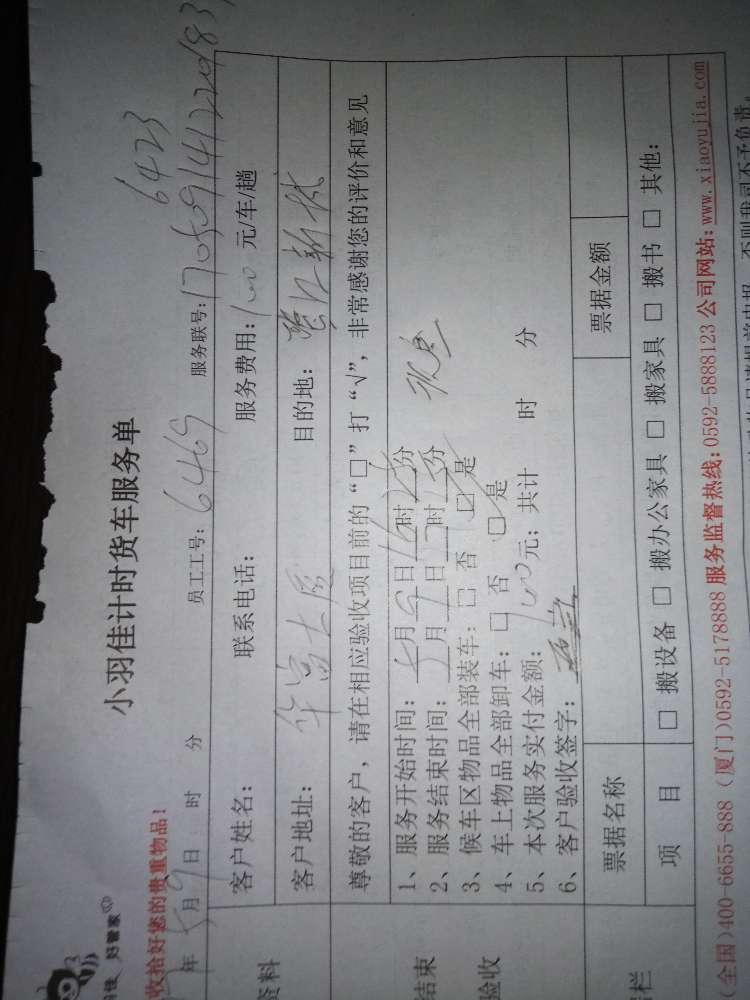 小羽佳计时货车服务单
6423
好管家
收拾好您的贵重物品!
员工工号: 6469 服务联号: 17050914122983
年 5月9日 时 分
客户姓名: 联系电话: 服务费用: 100 元/车/趟
资料
客户地址: 华富大厦 目的地:
尊敬的客户, 请在相应验收项目前的“□”打“√”, 非常感谢您的评价和意见
1、服务开始时间: 5月9日16时 分
2、服务结束时间: 5月9日17时 分
3、候车区物品全部装车: □ 否 □ 是
4、车上物品全部卸车: □ 否 □ 是
5、本次服务实付金额: 100元; 共计 时 分
6、客户验收签字:
结束
验收
票据名称 票据金额
栏
项 目 □ 搬设备 □ 搬办公家具 □ 搬家具 □ 搬书 □ 其他:
(全国)400-6655-888 (厦门)0592-5178888 服务监督热线:0592-5888123 公司网站:www.xiaoyujia.com
否则我司不予负责。